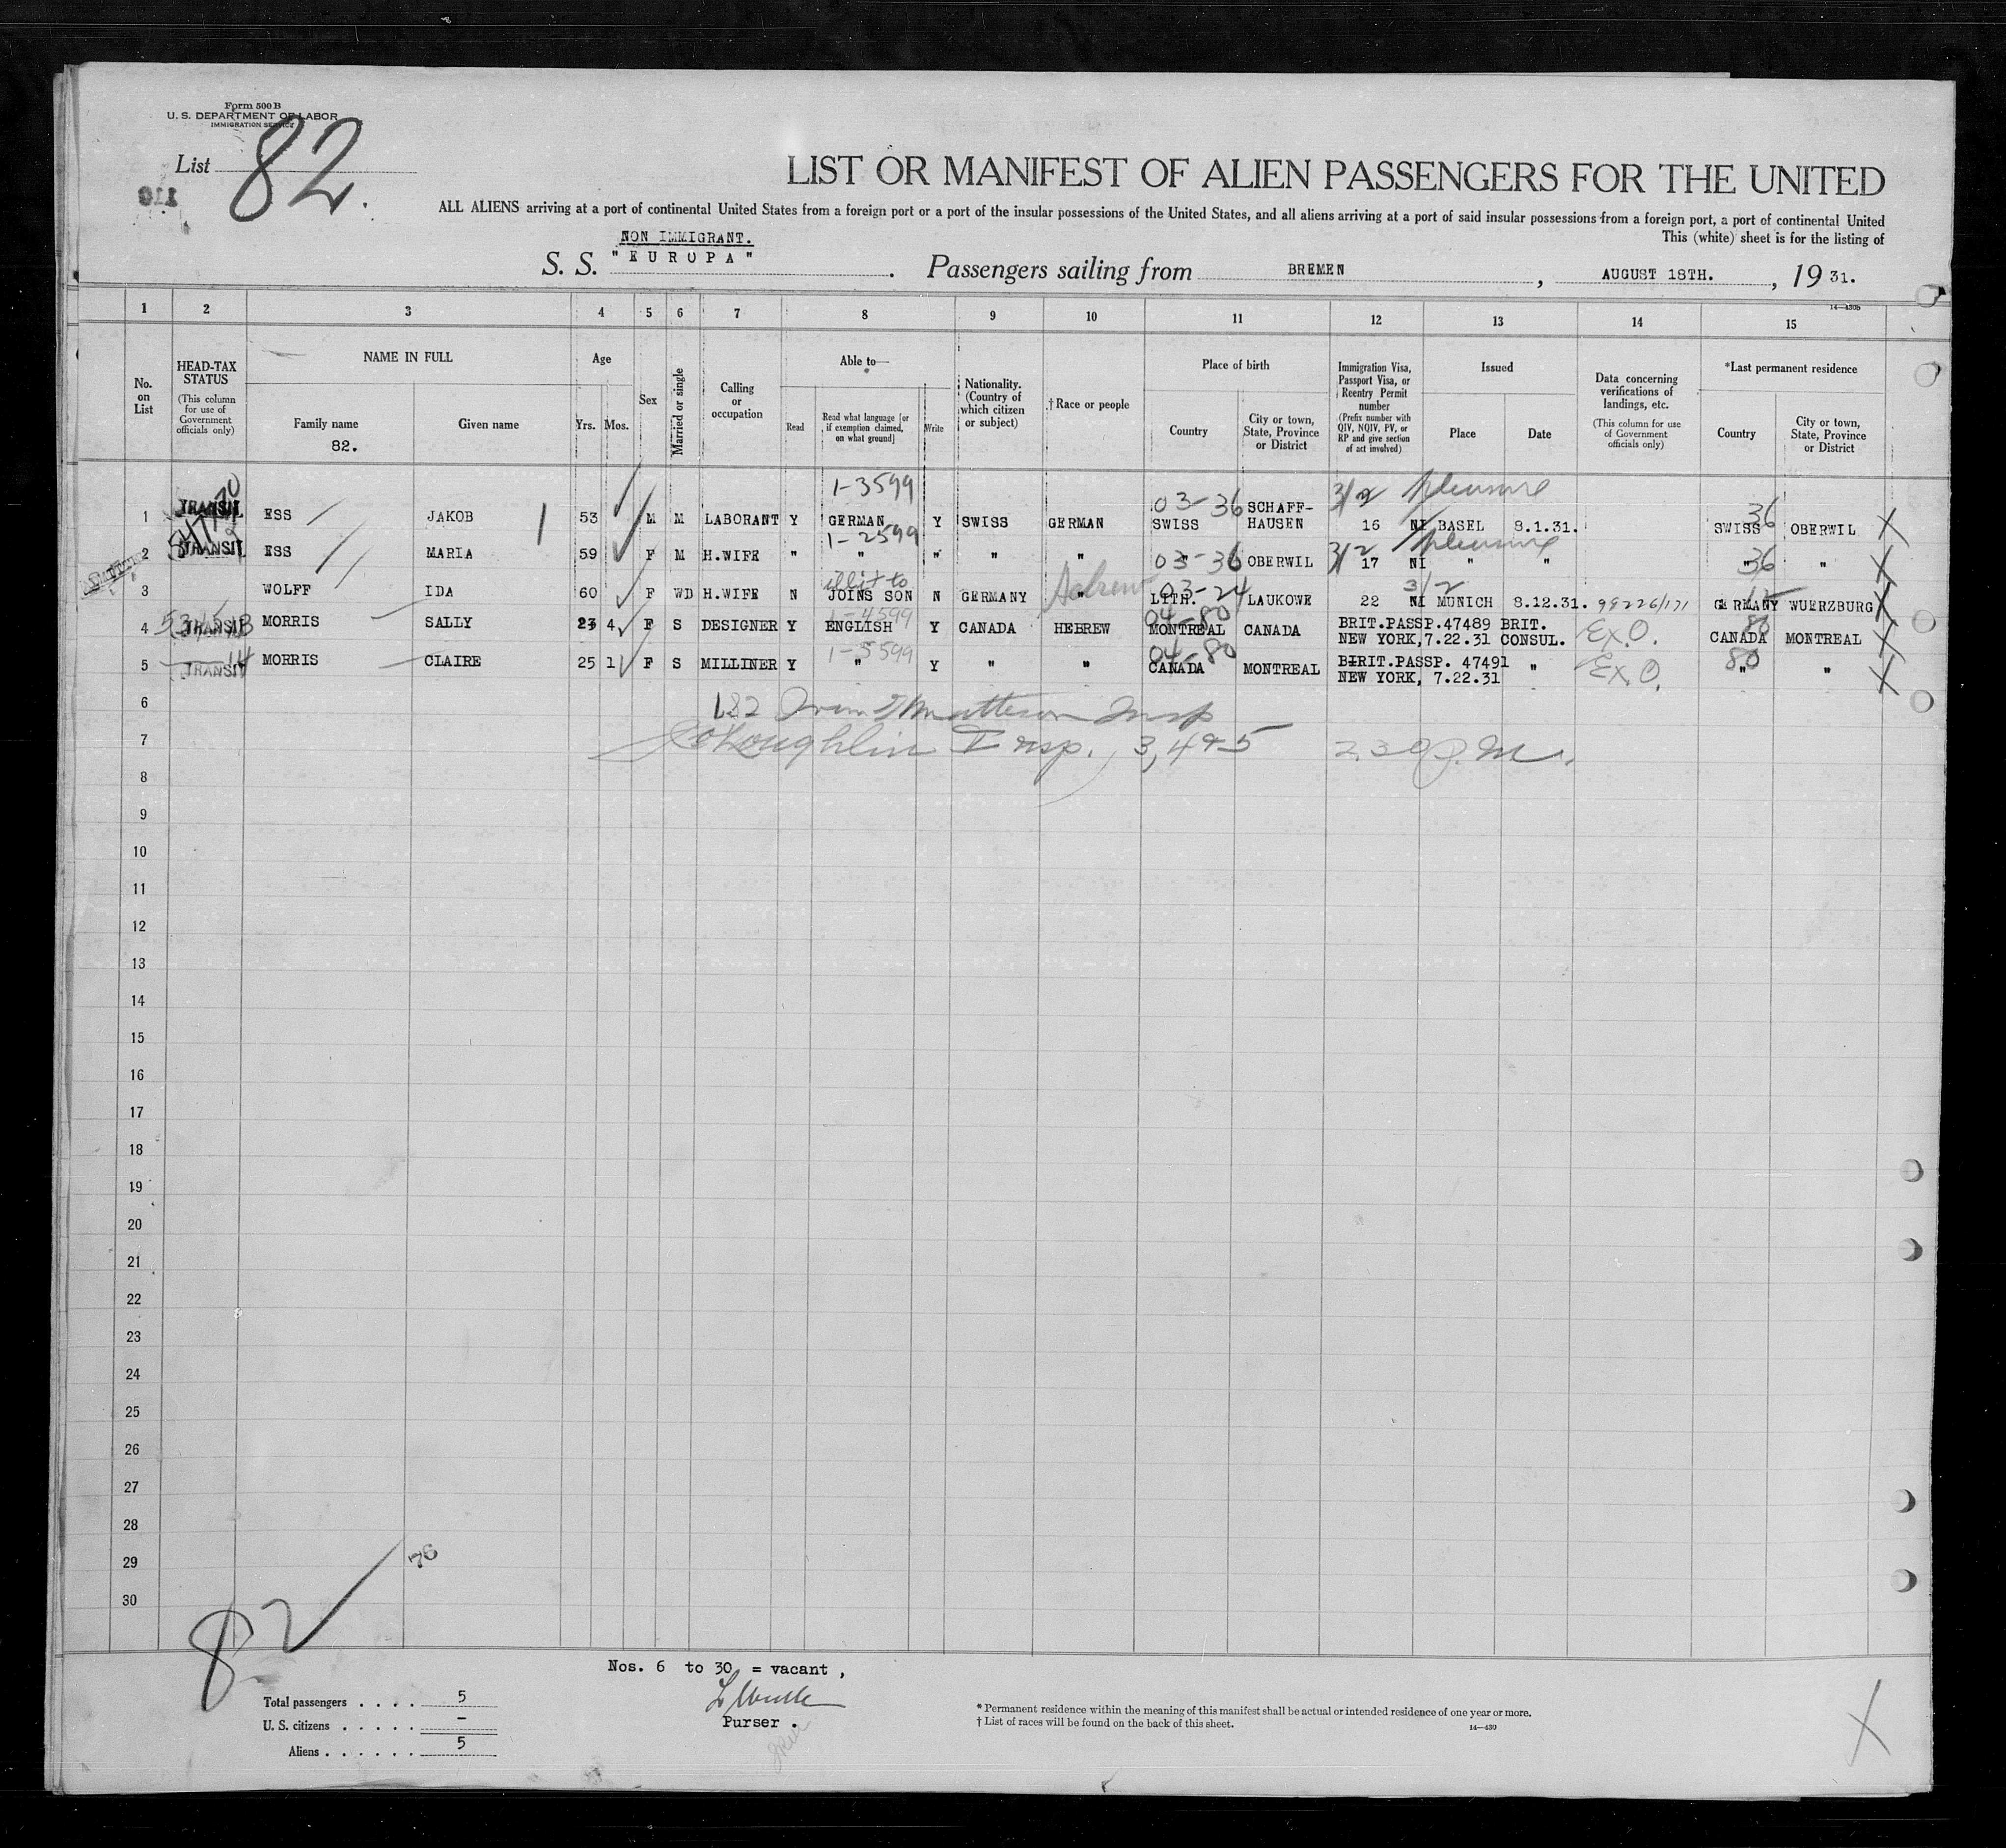 Form 500 B
U. S. DEPARTMENT OF LABOR
IMMIGRATION SERVICE
List 82.
LIST OR MANIFEST OF ALIEN PASSENGERS FOR THE UNITED
ALL ALIENS arriving at a port of continental United States from a foreign port or a port of the insular possessions of the United States, and all aliens arriving at a port of said insular possessions from a foreign port, a port of continental United
This (white) sheet is for the listing of
NON IMMIGRANT.
S. S. "EUROPA". Passengers sailing from BREMEN, AUGUST 18TH., 19 31.
14—430b
1 2 3 4 5 6 7 8 9 10 11 12 13 14 15
No. on List
HEAD-TAX STATUS (This column for use of Government officials only)
NAME IN FULL
Family name
82.
Given name
Age
Yrs. Mos.
Sex
Married or single
Calling or occupation
Able to—
Read
Read what language [or if exemption claimed, on what ground]
Write
Nationality. (Country of which citizen or subject)
† Race or people
Place of birth
Country
City or town, State, Province or District
Immigration Visa, Passport Visa, or Reentry Permit number (Prefix number with QIV, NQIV, PV, or RP and give section of act involved)
Issued
Place
Date
Data concerning verifications of landings, etc. (This column for use of Government officials only)
*Last permanent residence
Country
City or town, State, Province or District
1-3599 03-36 3/2 pleasure 36
1 TRANSIT ESS JAKOB 53 M M LABORANT Y GERMAN Y SWISS GERMAN SWISS SCHAFF-HAUSEN 16 NI BASEL 8.1.31. SWISS OBERWIL X
1-2599 03-36 3/2 pleasure 36
2 TRANSIT ESS MARIA 59 F M H.WIFE " " " " " " OBERWIL 17 NI " " " " X
illit to Hebrew 03-24 3/2
3 WOLFF IDA 60 F WD H.WIFE N JOINS SON N GERMANY " LITH. LAUKOWE 22 NI MUNICH 8.12.31. 99226/171 GERMANY WUERZBURG X
1-4599 04-80 80
4 TRANSIT MORRIS SALLY 23 4 F S DESIGNER Y ENGLISH Y CANADA HEBREW MONTREAL CANADA BRIT.PASSP.47489 BRIT. NEW YORK,7.22.31 CONSUL. Ex.O. CANADA MONTREAL X
1-5599 04-80 80
5 TRANSIT MORRIS CLAIRE 25 1 F S MILLINER Y " Y " " CANADA MONTREAL BIRIT.PASSP. 47491 " NEW YORK, 7.22.31 Ex.O. " " X
6
7 Insp. 3,4&5 2 30 P.M.
8
9
10
11
12
13
14
15
16
17
18
19
20
21
22
23
24
25
26
27
28
29
30
76
82
Nos. 6 to 30 = vacant,
Purser.
Total passengers . . . . 5
U. S. citizens . . . . . –
Aliens . . . . . . 5
* Permanent residence within the meaning of this manifest shall be actual or intended residence of one year or more.
† List of races will be found on the back of this sheet.
14—430
X